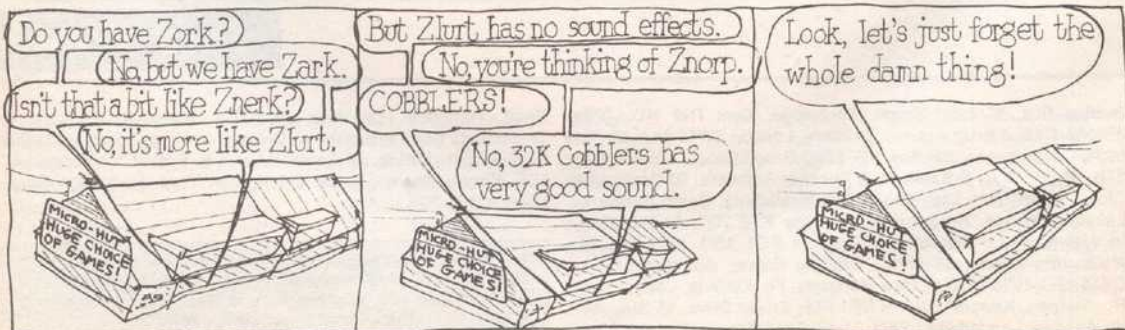 Do you have Zork?
No, but we have Zark.
Isn't that a bit like Znerk?
No, it's more like Zlurt.
MICRO-HUT
HUGE CHOICE
OF GAMES!
But Zlurt has no sound effects.
No, you're thinking of Znorp.
COBBLERS!
No, 32K Cobblers has
very good sound.
MICRO-HUT
HUGE CHOICE
OF GAMES!
Look, let's just forget the
whole damn thing!
MICRO-HUT
HUGE CHOICE
OF GAMES!